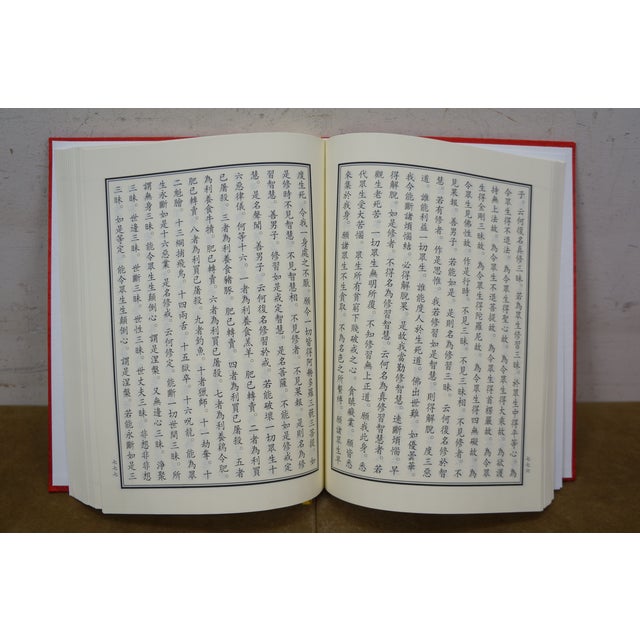 子。云何復名真修三昧。若為眾生修習三昧。於眾生中得平等心。為
令眾生得不退法故。為令眾生得聖心故。為令眾生得大乘故。為欲護
持無上法故。為令眾生不退菩提故。為令眾生得首楞嚴故。為令眾
生得金剛三昧故。為令眾生得陀羅尼故。為令眾生得四無礙故。為
令眾生見佛性故。作是行時。不見三昧。不見三昧相。不見修者。不
見果報。善男子。若能如是。是則名為修習三昧。云何復名修於智
慧。若有修者。作是思惟。我若修習如是智慧。則得解脫。度三惡
道。誰能利益一切眾生。誰能度人於生死道。佛出世難。如優曇華。
我今能斷諸煩惱結。必得解脫果。是故我當勤修智慧。速斷煩惱。早
得解脫。如是修者。不得名為修習智慧。云何名為真修習智慧。若
觀生老死苦。一切眾生無明所覆。不知修習無上正道。願我此身。悉
代眾生受大苦惱。眾生所有貧窮下賤破戒之心。貪瞋癡業。願皆悉
來集於我身。願諸眾生不生貪取。不為名色之所繫縛。願諸眾生早
七七六
度生死。令我一身處之不厭。願令一切皆得阿耨多羅三藐三菩提。如
是修時不見智慧。不見智慧相。不見修者。不見果報。是則名為修
習智慧。善男子。修習如是戒定智慧。是名菩薩。不能如是修戒定
慧。是名聲聞。善男子。云何復名修習於戒。若能破壞一切眾生十
六惡律儀。何等十六。一者為利養食羔羊。肥已轉賣。二者為利買
已屠殺。三者為利養食豬豚。肥已轉賣。四者為利買已屠殺。五者
為利養食牛犢。肥已轉賣。六者為利買已屠殺。七者為利養鷄令肥。
肥已轉賣。八者為利買已屠殺。九者釣魚。十者獵師。十一劫奪。十
二魁膾。十三網捕飛鳥。十四兩舌。十五獄卒。十六呪龍。能為眾
生永斷如是十六惡業。是名修戒。云何修定。能斷一切世間三昧。所
謂無身三昧。能令眾生生顛倒心。謂是涅槃。又無邊心三昧。淨聚
三昧。世邊三昧。世斷三昧。世性三昧。世丈夫三昧。非想非非想
三昧。如是等定。能令眾生生顛倒心。謂是涅槃。若能永斷如是三
七七七